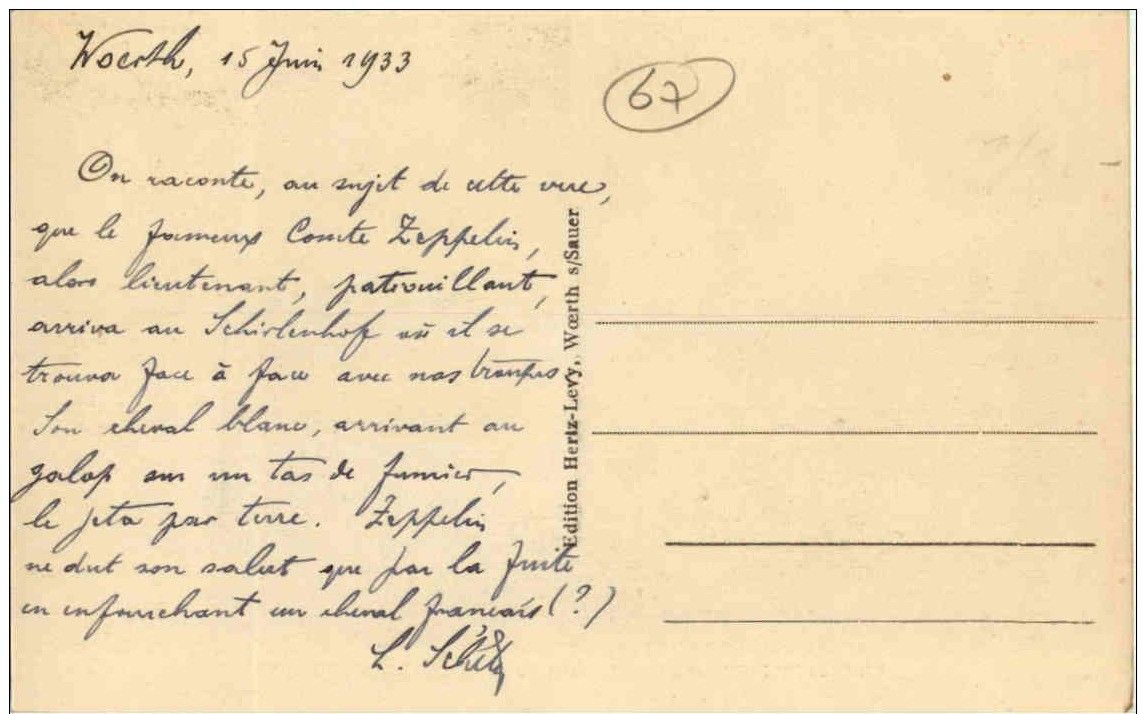 Woerth, 15 Juin 1933
67
On raconte, au sujet de cette vue,
que le fameux Comte Zeppelin,
alors lieutenant, patrouillant,
arriva au Schirlenhof où il se
trouva face à face avec nos troupes
Son cheval blanc, arrivant au
galop sur un tas de fumier,
le jeta par terre. Zeppelin
ne dut son salut que par la fuite
en enfourchant un cheval français (?)
L.
Edition Hertz-Levy, Wœrth s/Sauer